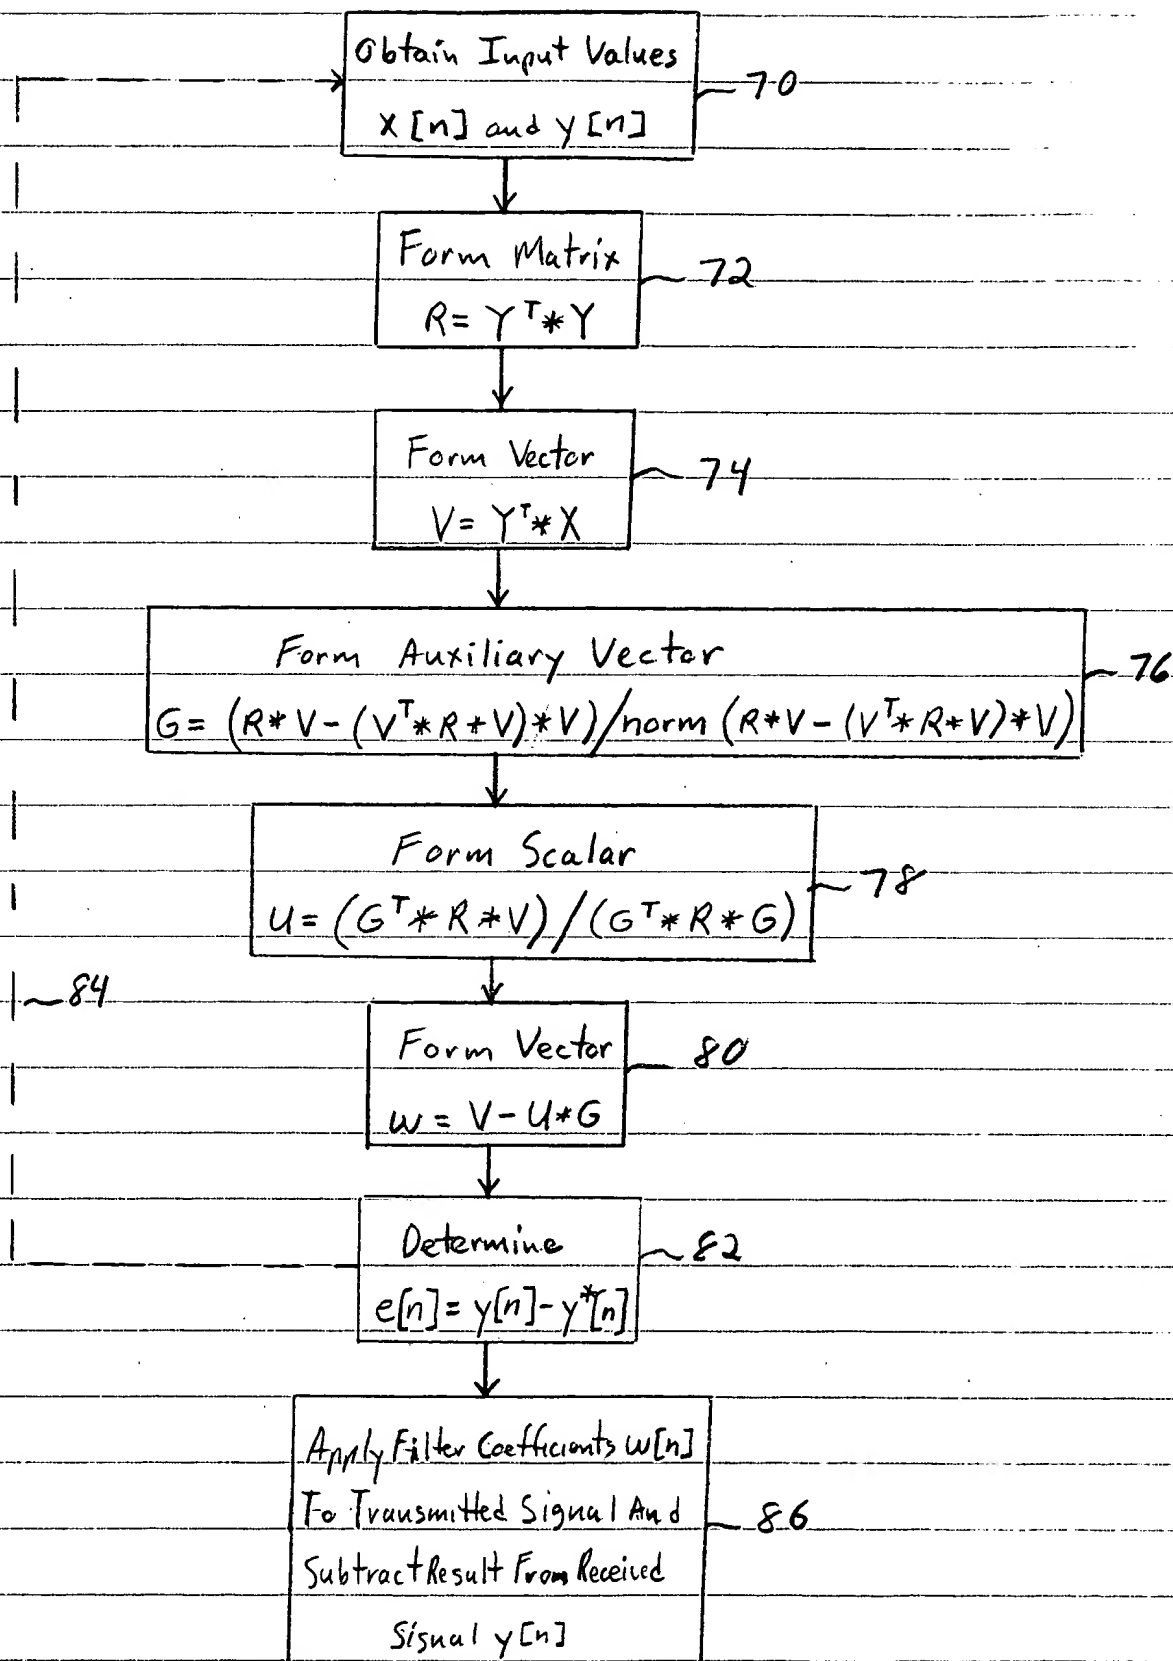 Obtain Input Values
70
x[n] and y[n]
Form Matrix
72
R= Yᵀ*Y
Form Vector
74
V= Yᵀ*X
Form Auxiliary Vector
76
G= (R*V-(Vᵀ*R*V)*V)/norm(R*V-(Vᵀ*R*V)*V)
Form Scalar
78
U=(Gᵀ*R*V)/(Gᵀ*R*G)
84
Form Vector
80
w = V-U*G
Determine
82
e[n]=y[n]-y*[n]
Apply Filter Coefficients w[n]
To Transmitted Signal And
86
Subtract Result From Received
Signal y[n]